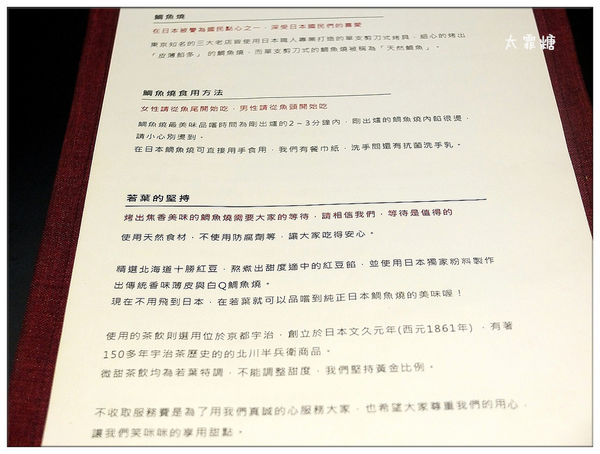 鯛魚燒
在日本被譽為國民點心之一，深受日本國民們的喜愛
東京知名的三大老店皆使用日本職人專業打造的單支剪刀式烤具，細心的烤出
「皮薄餡多」的鯛魚燒，而單支剪刀式的鯛魚燒被稱為「天然鯛魚」。
太霏糖
鯛魚燒食用方法
女性請從魚尾開始吃，男性請從魚頭開始吃
鯛魚燒最美味品嚐時間為剛出爐的2~3分鐘內，剛出爐的鯛魚燒內餡很燙，
請小心別燙到。
在日本鯛魚燒可直接用手食用，我們有餐巾紙，洗手間還有抗菌洗手乳。
若葉的堅持
烤出焦香美味的鯛魚燒需要大家的等待，請相信我們，等待是值得的
使用天然食材，不使用防腐劑等，讓大家吃得安心。
精選北海道十勝紅豆，熬煮出甜度適中的紅豆餡，並使用日本獨家粉料製作
出傳統香味薄皮與白Q鯛魚燒。
現在不用飛到日本，在若葉就可以品嚐到純正日本鯛魚燒的美味喔！
使用的茶飲則選用位於京都宇治，創立於日本文久元年(西元1861年)，有著
150多年宇治茶歷史的的北川半兵衛商品。
微甜茶飲均為若葉特調，不能調整甜度，我們堅持黃金比例。
不收取服務費是為了用我們真誠的心服務大家，也希望大家尊重我們的用心，
讓我們笑咪咪的享用甜點。